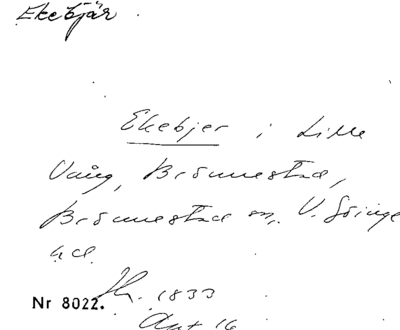 Ekebjär
Ekebjer i Lilla
Vång, Brönnestad,
Brönnestad sn, V. Göinge
hd.
1833
Nr 8022.
Akt 16